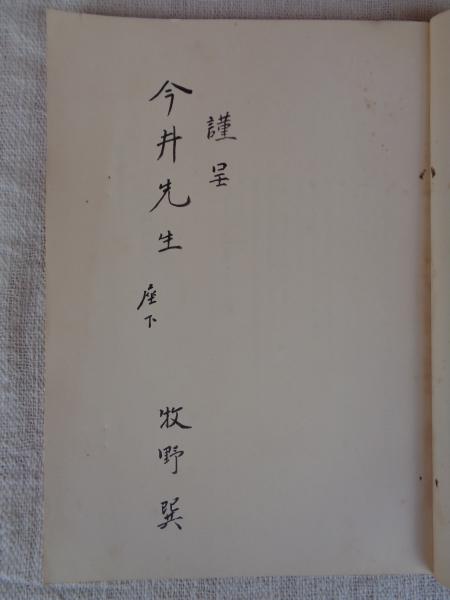 謹呈
今井先生 座下
牧野巽